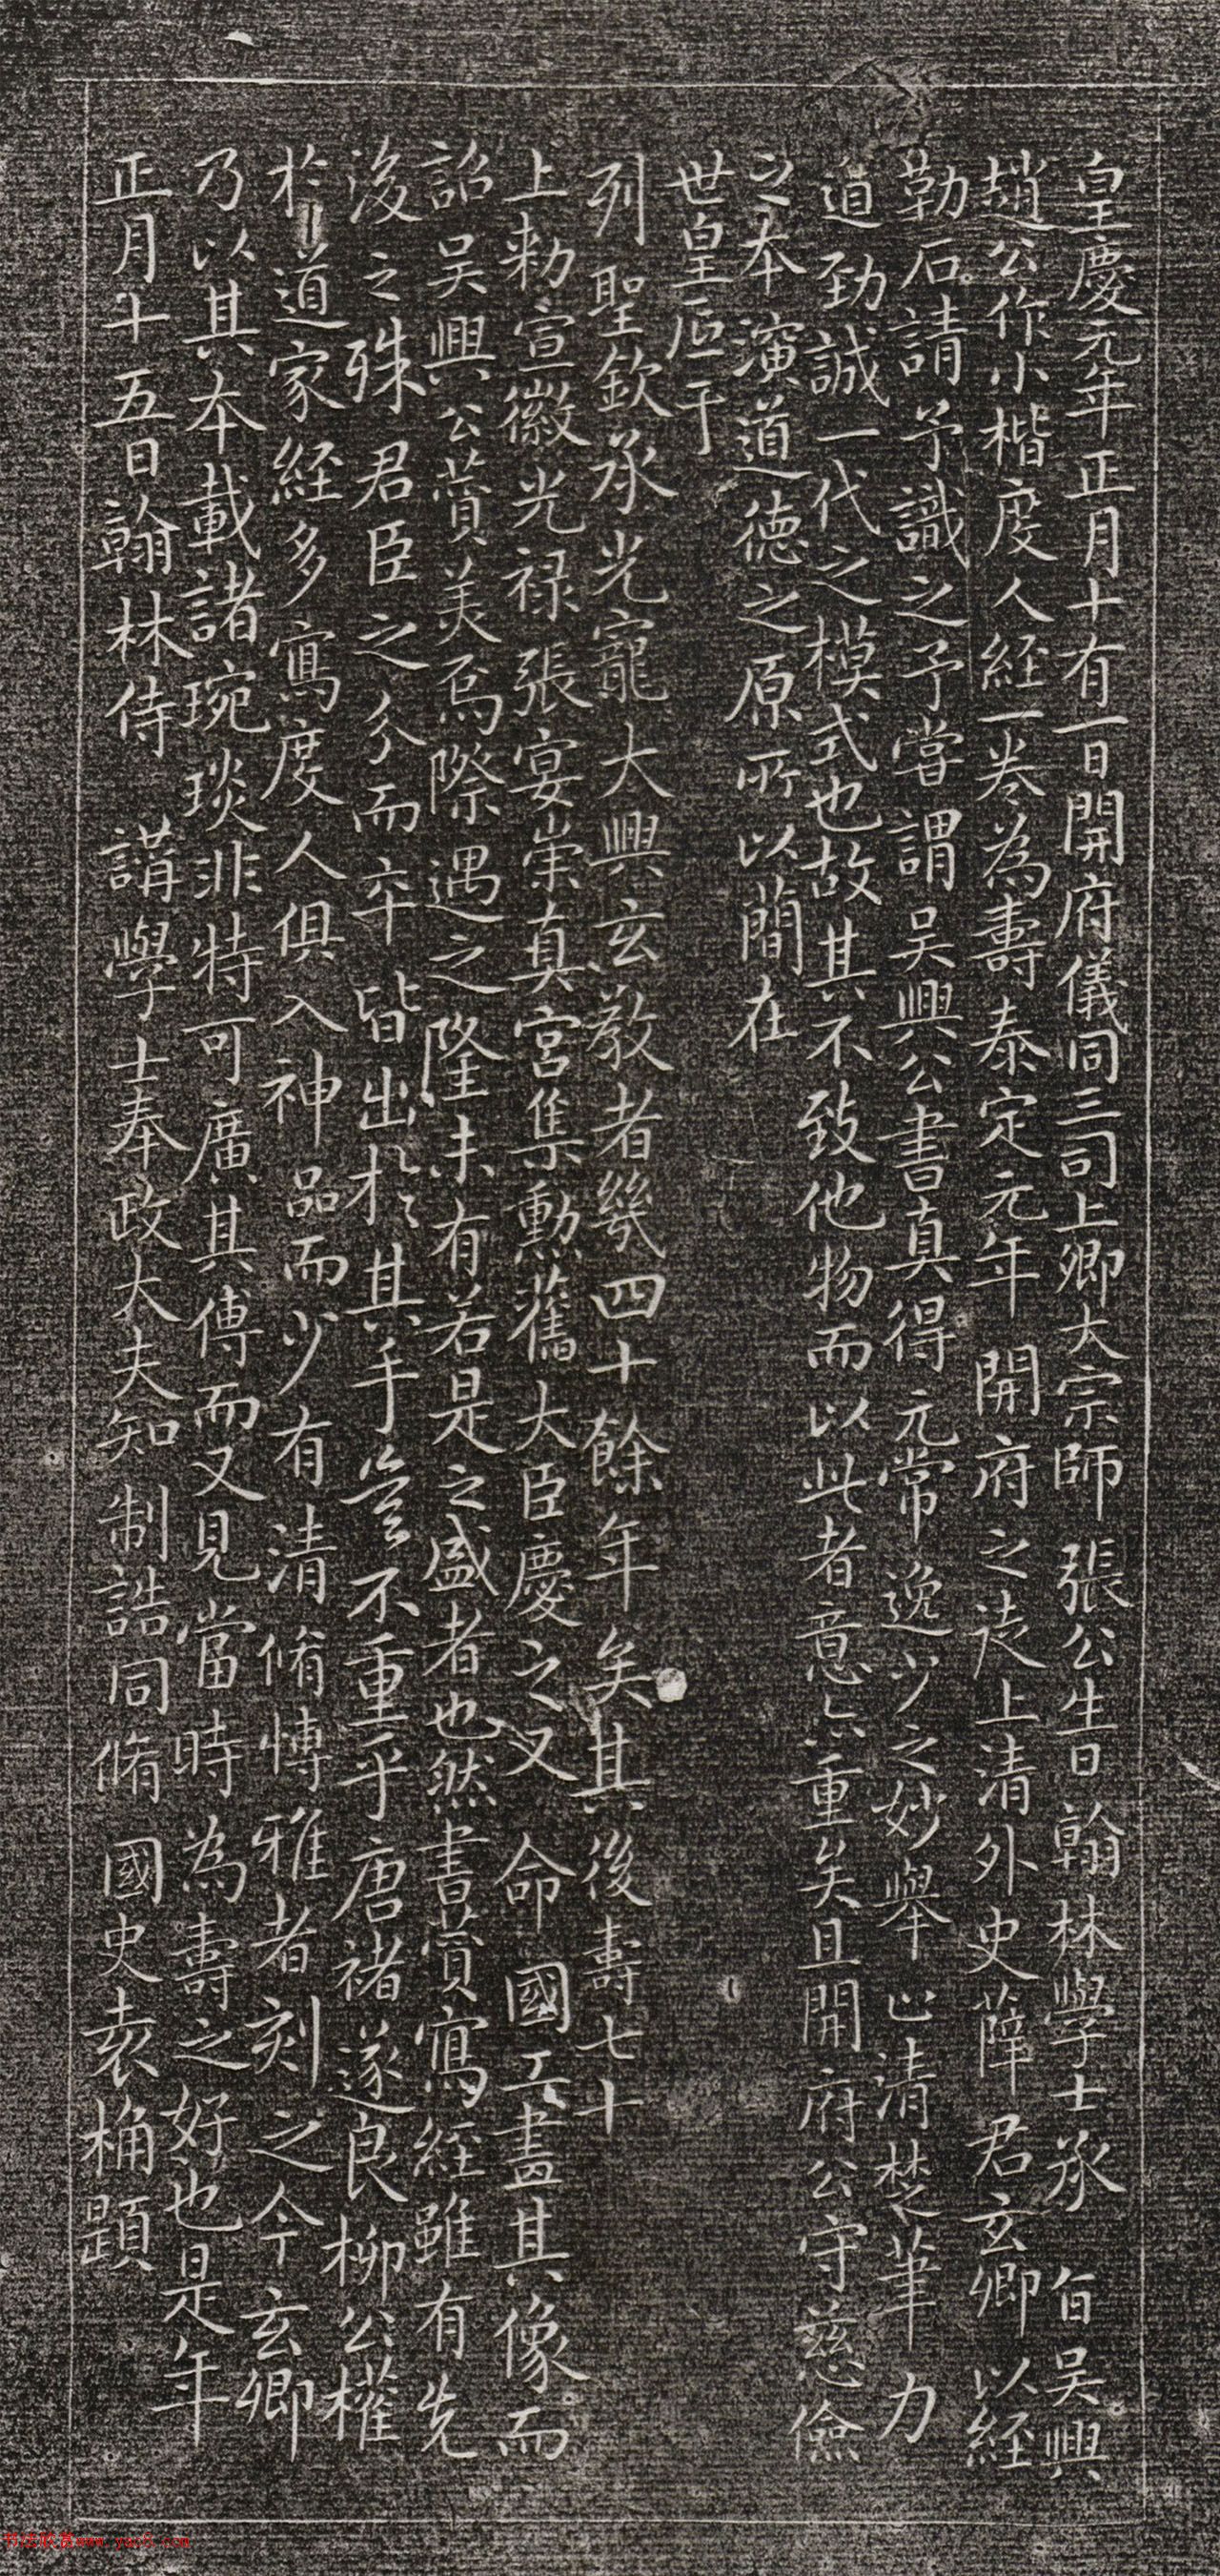 皇慶元年正月十有一日開府儀同三司上卿大宗師張公生日翰林學士承旨吳興
趙公作小楷度人經一卷為壽泰定元年開府之徒上清外史薛君玄卿以經
勒石請予識之予嘗謂吳興公書真得元常逸少之妙舉止清楚筆力
遒勁誠一代之模式也故其不致他物而以此者意亦重矣且開府公守慈儉
之本演道德之原所以簡在
世皇臣于
列聖欽承光寵大興玄教者幾四十餘年矣其後壽七十
上勑宣徽光祿張宴崇真宮集勳舊大臣慶之又命國工畫其像而
詔吳興公贊美焉際遇之隆未有若是之盛者也然書贊寫經雖有先
後之殊君臣之分而卒皆出於其手無不重乎唐褚遂良柳公權
於道家經多寫度人俱入神品而少有清脩博雅者刻之今玄卿
乃以其本載諸琬琰非特可廣其傳而又見當時為壽之好也是年
正月十五日翰林侍講學士奉政大夫知制誥同脩國史袁桷題
www.yac8.com